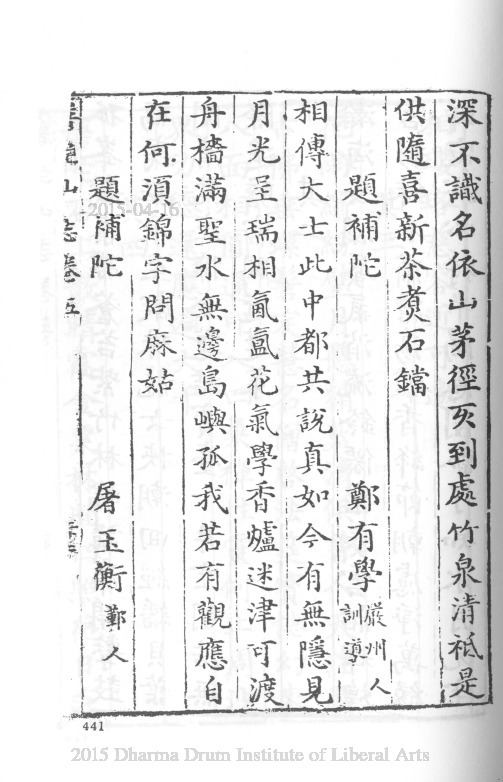 深不識名依山茅徑亥到處竹泉清祗是
供隨喜新茶煑石鐺
題補陀 鄭有學 嚴州人訓導
相傳大士此中都共說真如今有無隱見
月光呈瑞相氤氳花氣學香爐迷津可渡
舟檣滿聖水無邊島嶼孤我若有觀應自
在何須錦字問麻姑
題補陀 屠玉衡 鄞人
山志卷五
2015-04-16
441
2015 Dharma Drum Institute of Liberal Arts